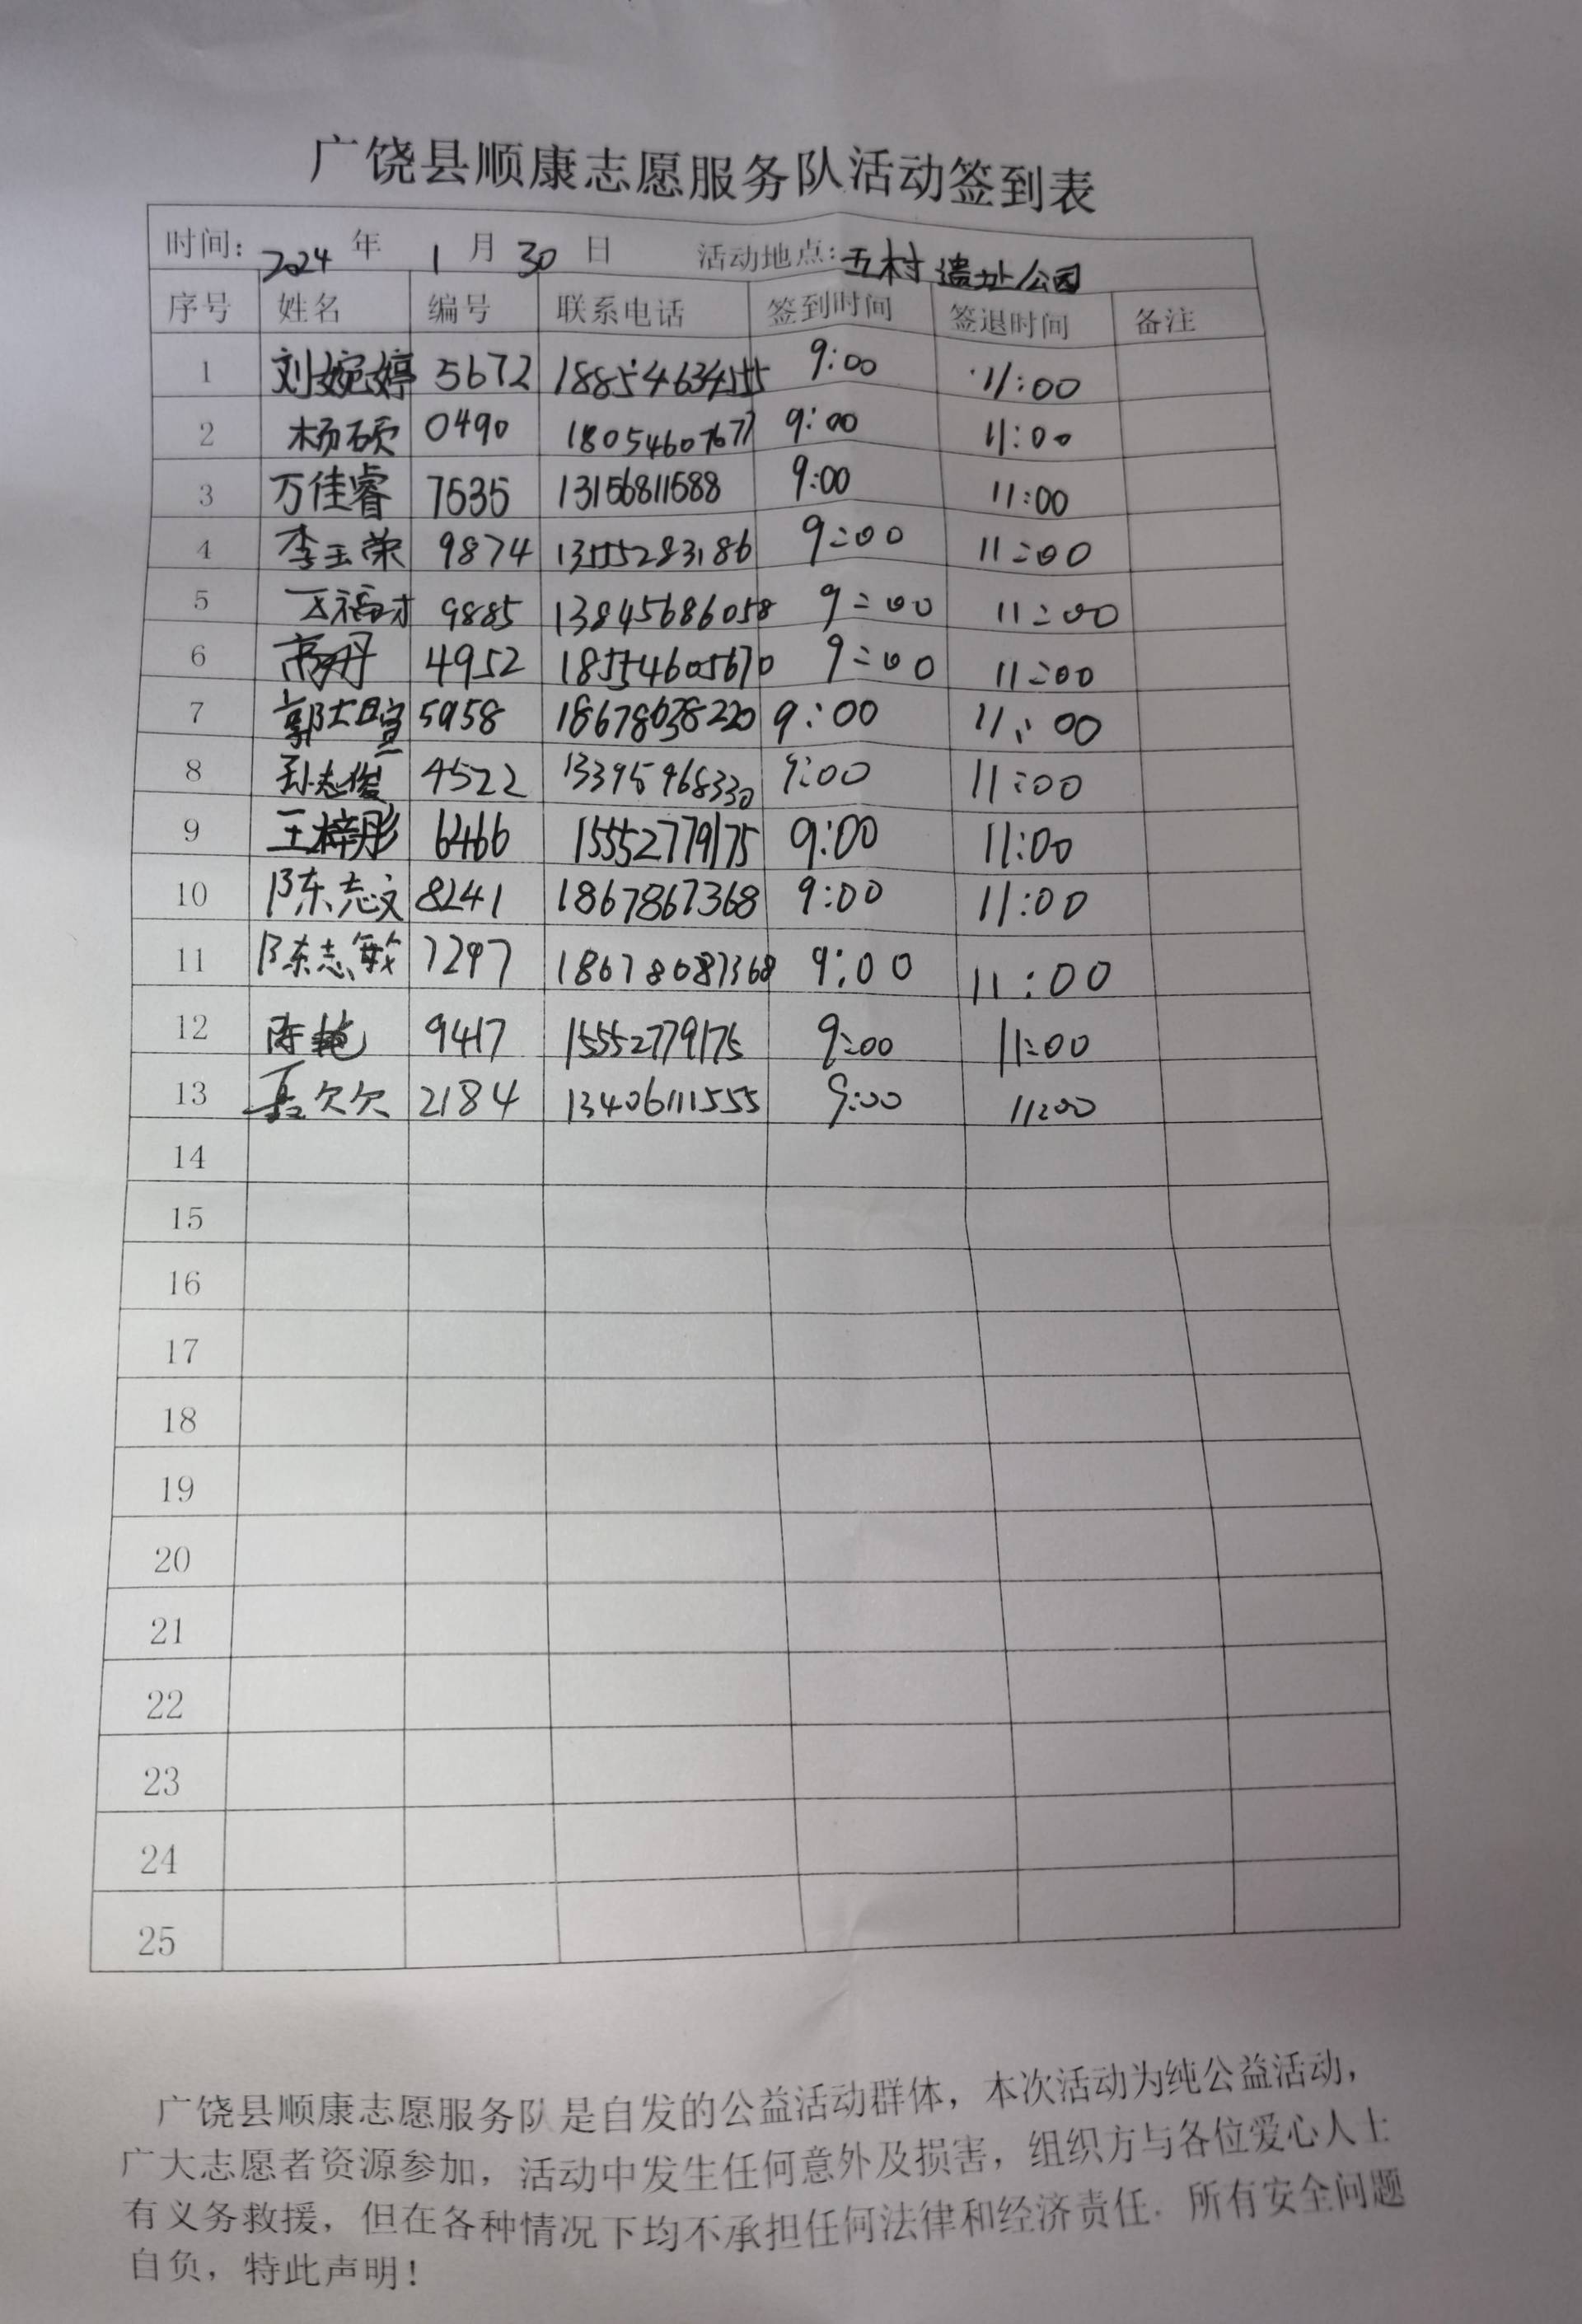 广饶县顺康志愿服务队活动签到表
时间: 2024 年 1 月 30 日 活动地点: 五村遗址公园
序号 姓名 编号 联系电话 签到时间 签退时间 备注
1 刘婉婷 5672 18854634555 9:00 11:00
2 杨硕 0490 18054607677 9:00 11:00
3 万佳睿 7535 13156811588 9:00 11:00
4 李玉荣 9874 13555283186 9:00 11:00
5 9885 13845686058 9:00 11:00
6 高丹 4952 18554605670 9:00 11:00
7 5958 9:00 11:00
8 孙志俊 4522 13395468330 9:00 11:00
9 王梓彤 6466 15552779175 9:00 11:00
10 陈志文 8241 1867867368 9:00 11:00
11 陈志敏 7297 18678687368 9:00 11:00
12 陈艳 9417 15552779175 9:00 11:00
13 聂欠欠 2184 13406111555 9:00 11:00
14
15
16
17
18
19
20
21
22
23
24
25
广饶县顺康志愿服务队是自发的公益活动群体，本次活动为纯公益活动，
广大志愿者资源参加，活动中发生任何意外及损害，组织方与各位爱心人士
有义务救援，但在各种情况下均不承担任何法律和经济责任. 所有安全问题
自负，特此声明！